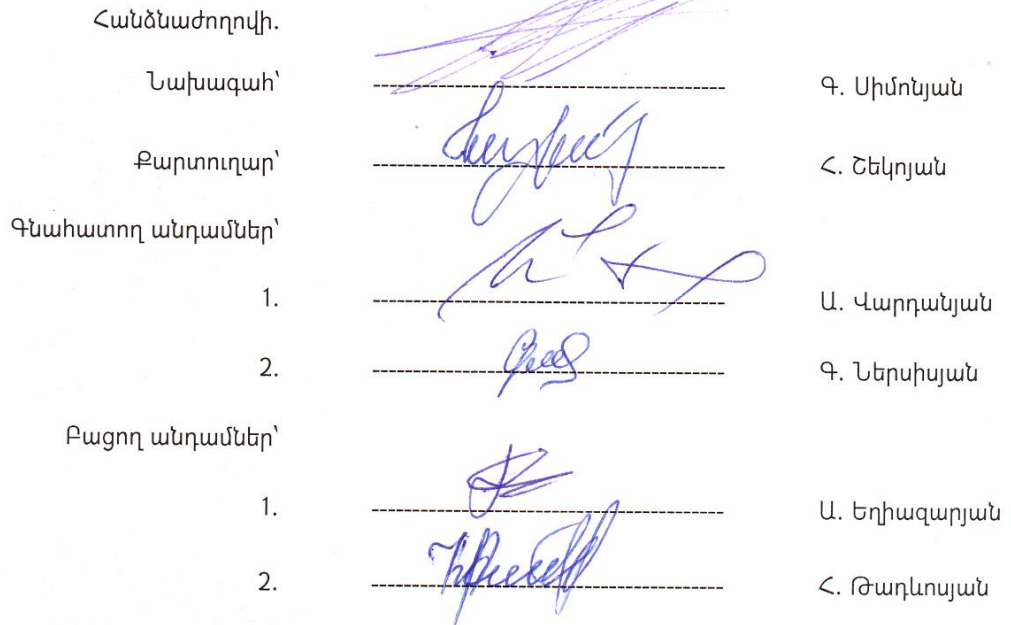 Հանձնաժողովի.
Նախագահ՝ Գ. Սիմոնյան
Քարտուղար՝ Հ. Շեկոյան
Գնահատող անդամներ՝
1. Ա. Վարդանյան
2. Գ. Ներսիսյան
Բացող անդամներ՝
1. Ա. Եղիազարյան
2. Հ. Թադևոսյան